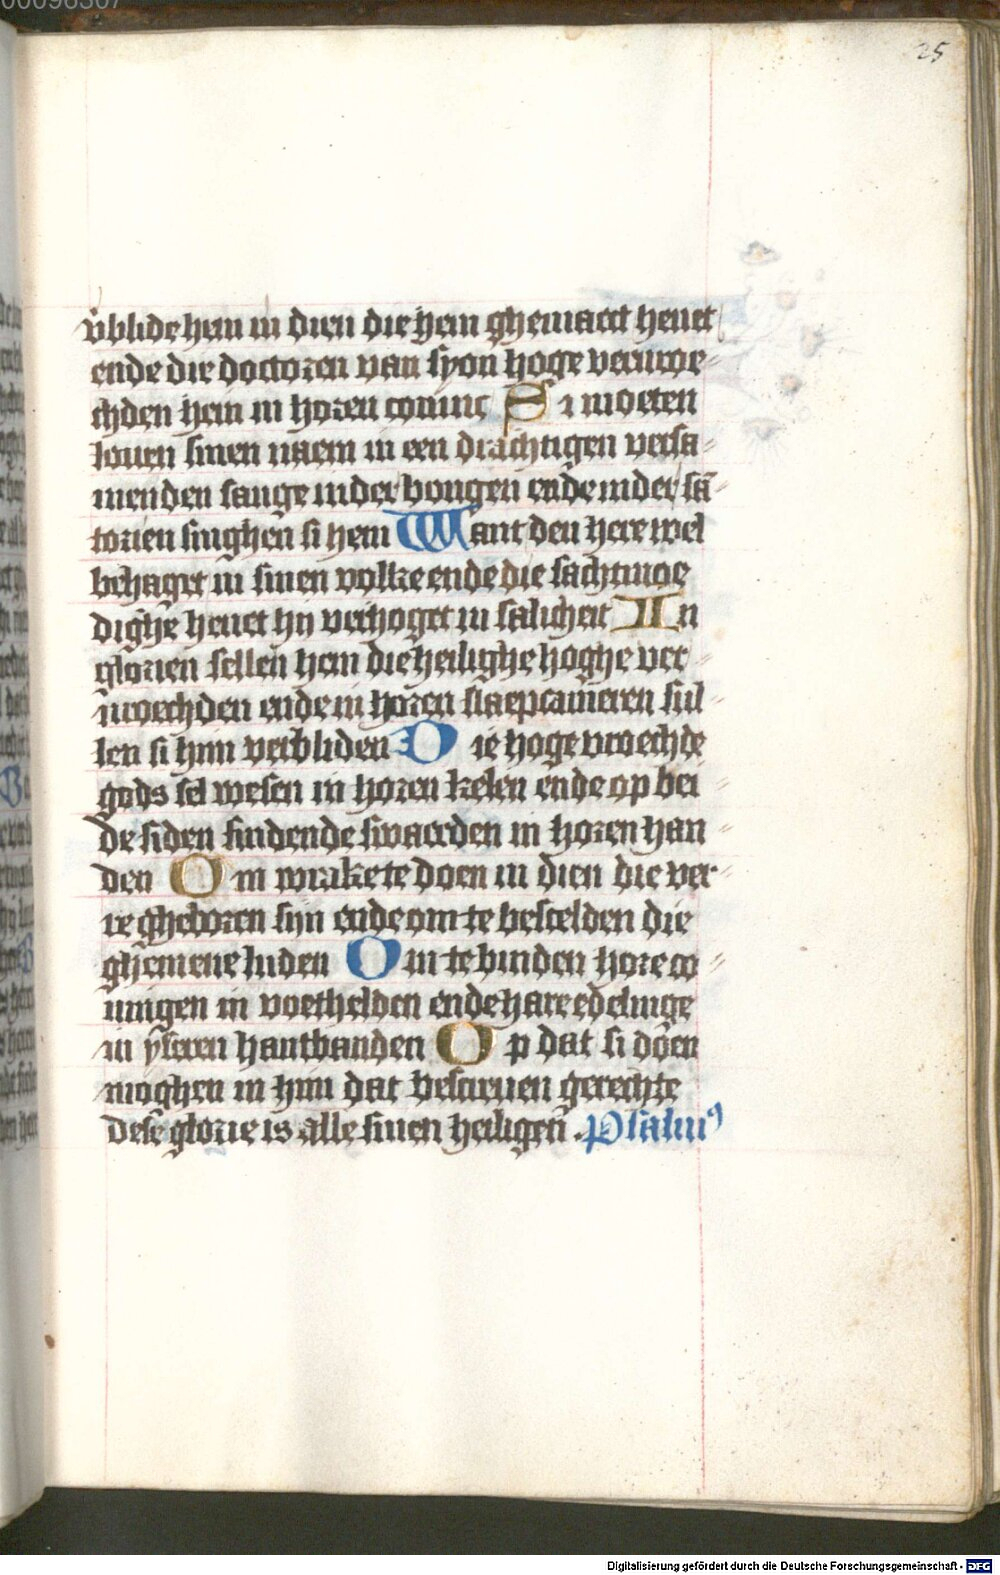 25
v̄blide hem in dien die hem ghemaect heuet
ende die doctoren van syon hoge verwoe-
chden hem in horen coninc Si moeten
louen sinen naem in een drachtigen versa-
menden sange in der bongen ende in der sā-
torien singhen si hem Want den here wel
behaget in sinen volke ende die sachtmoe
dighe heuet hy verhoget in salicheit In
glorien sellen hem die heilighe hoghe ver-
uroechden ende in horen slaepcameren sul
len si him verbliden Die hoge vroechde
gods sel wesen in horen kelen ende op bei
de siden snidende swaerden in horen han-
den Om wrake te doen in dien die ver-
re gheboren syn ende om te bescelden die
ghemene luden Om te binden hore co-
ningen in voethelden ende hare edelinge
in yseren hantbanden Op dat si doen
moghen in him dat bescreuen gerechte
dese glorie is alle sinen heiligen. Psalmꝰ
Digitalisierung gefördert durch die Deutsche Forschungsgemeinschaft - DFG